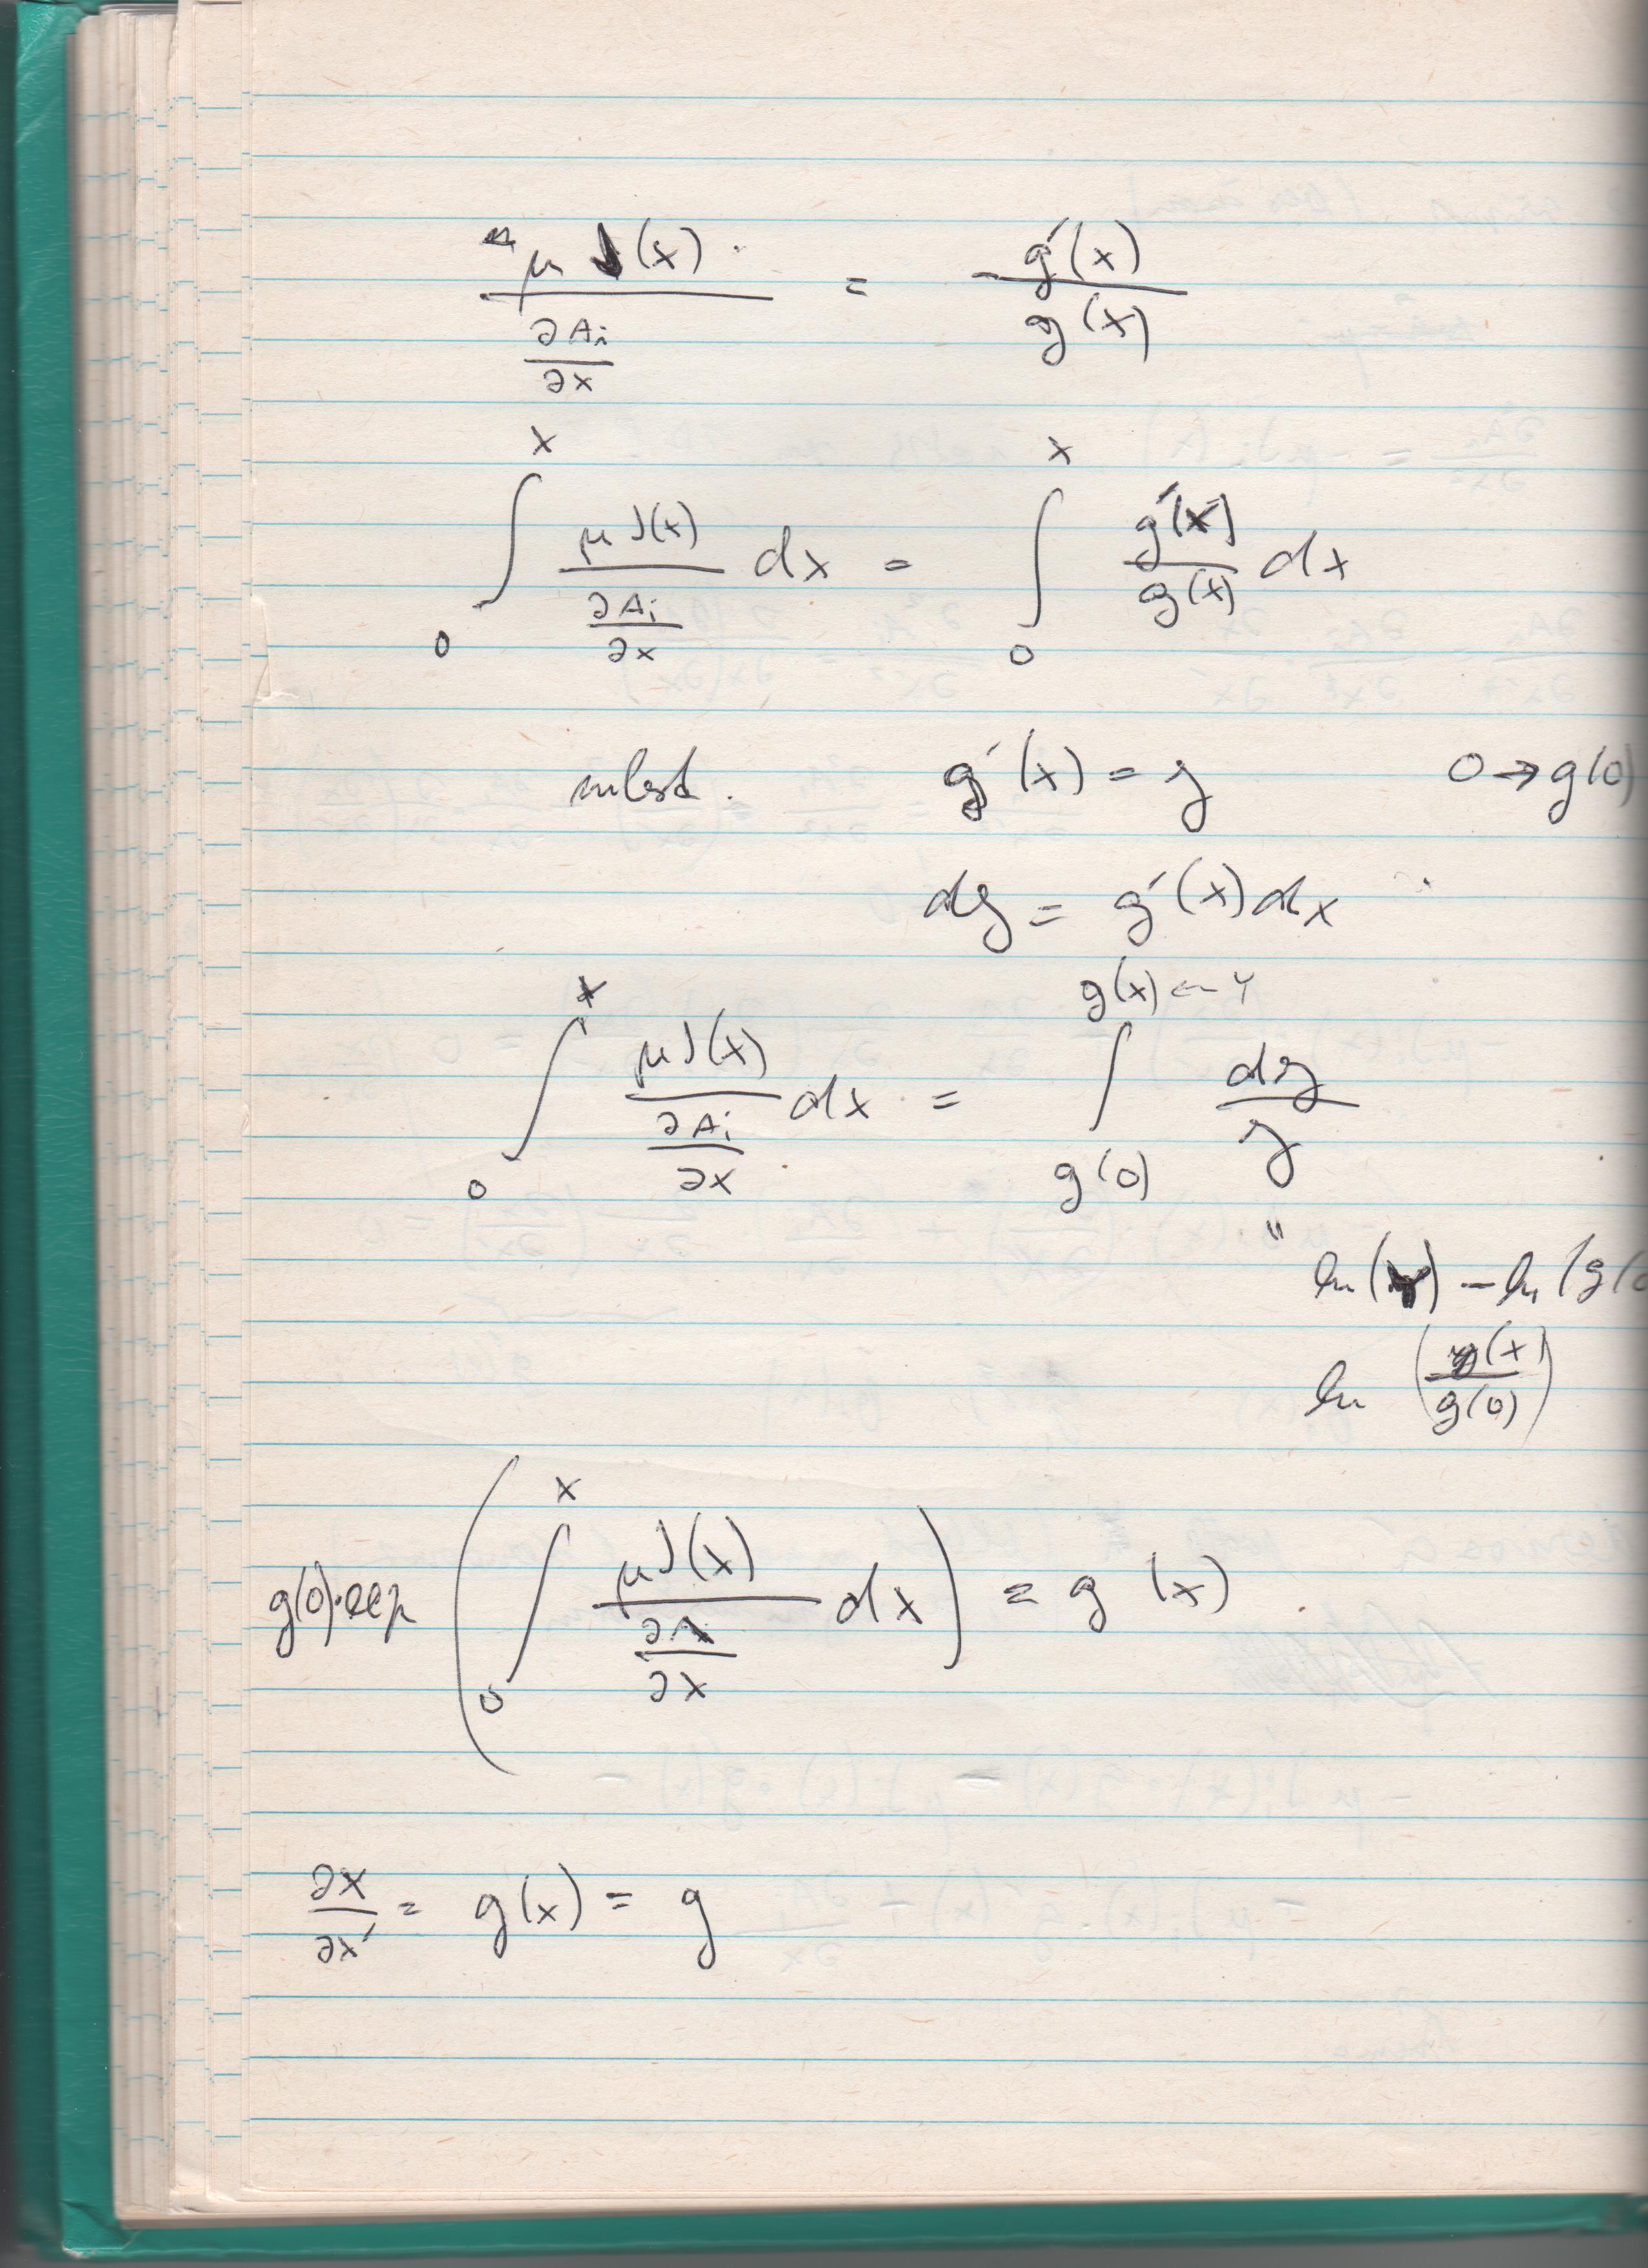 μ J(x) / (∂Ai / ∂x) = - g´(x) / g(x)
∫₀ˣ μ J(x) / (∂Ai / ∂x) dx = ∫₀ˣ g´(x) / g(x) dx
subst. g´(x) = y 0 → g(0)
dy = g´(x) dx
∫₀ˣ μ J(x) / (∂Ai / ∂x) dx = ∫ from g(0) to g(x) ← Y dy / y
"
ln(Y) - ln(g(0
ln (y(x) / g(0))
g(0)·exp (∫₀ˣ μ J(x) / (∂A / ∂x) dx) = g (x)
∂x / ∂x´ = g(x) = g